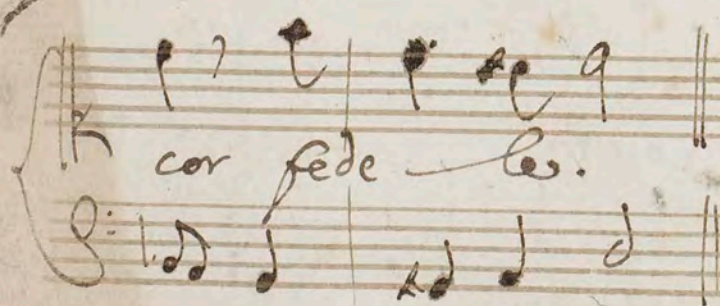 cor fede le.